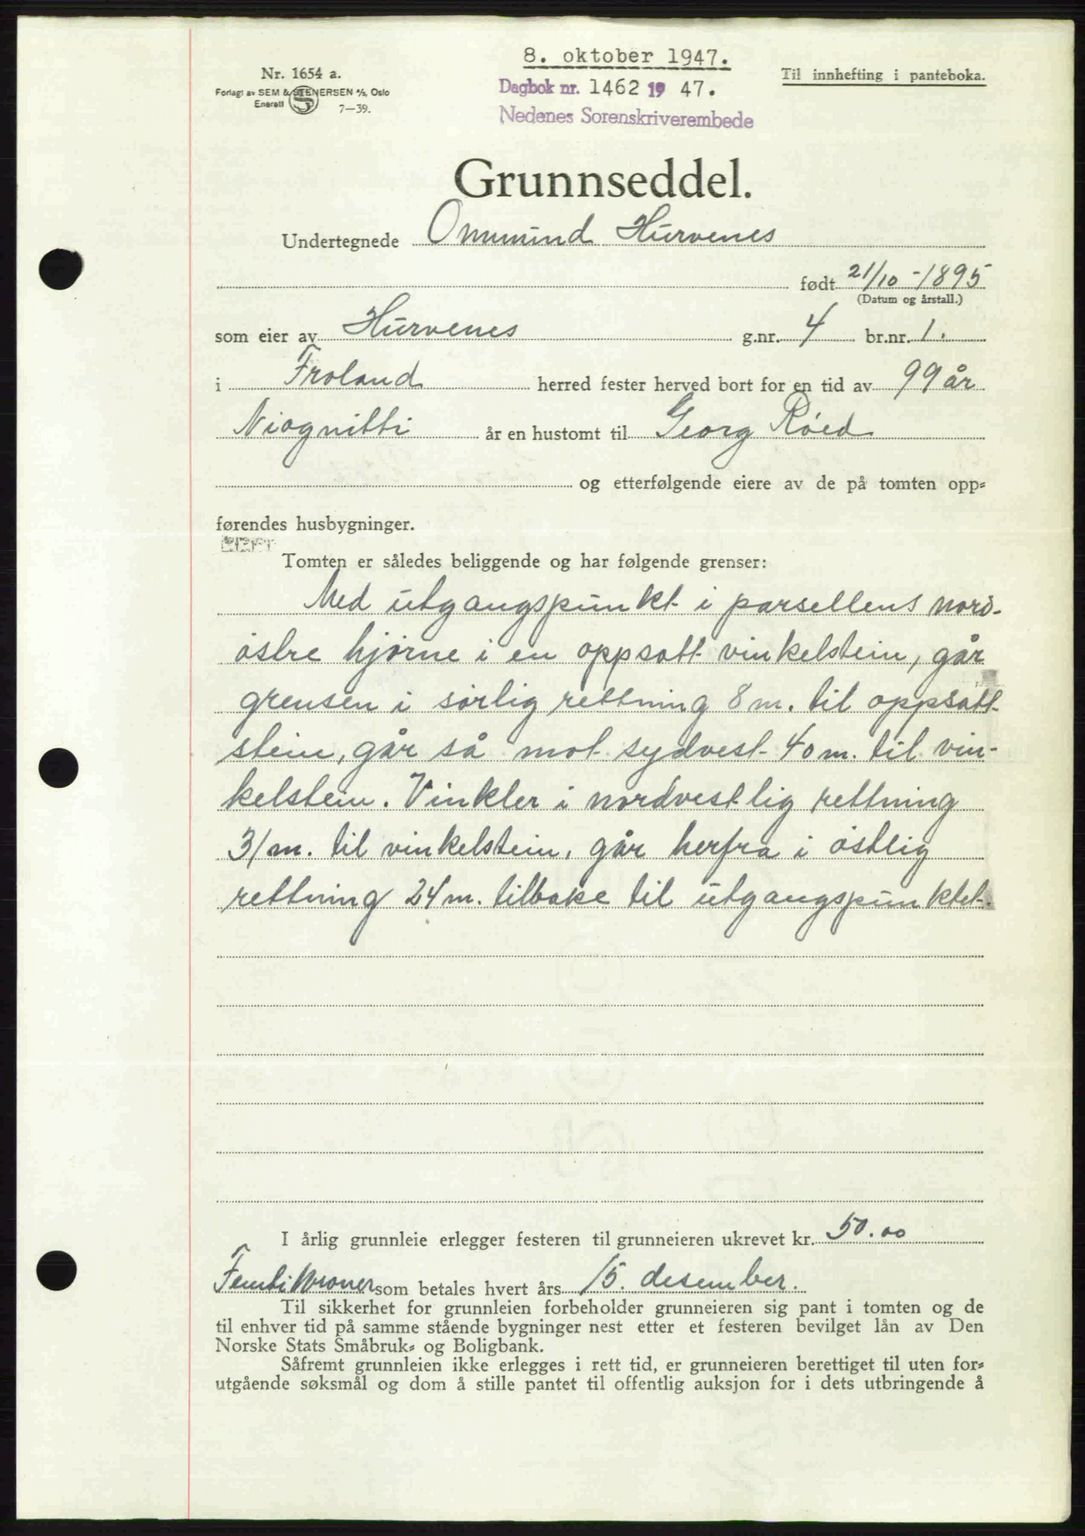 8. oktober 1947.
Nr. 1654 a.
Til innhefting i panteboka.
Forlagt av SEM & STENERSEN A/S, Oslo
Enerett 7—39.
Dagbok nr. 1462 19 47.
Nedenes Sorenskriverembede
Grunnseddel.
Undertegnede Ommund Hurvenes
født 21/10 - 1895
(Datum og årstall.)
som eier av Hurvenes g.nr. 4 br.nr. 1.
i Froland herred fester herved bort for en tid av 99 år
Niognitti år en hustomt til Georg Røed
og etterfølgende eiere av de på tomten opp=
førendes husbygninger.
Tomten er således beliggende og har følgende grenser:
Med utgangspunkt i parsellens nord-
østre hjørne i en oppsatt vinkelstein, går
grensen i sørlig rettning 8 m. til oppsatt
stein, går så mot sydvest 40 m. til vin-
kelstein. Vinkler i nordvestlig rettning
31 m. til vinkelstein, går herfra i østlig
rettning 24 m. tilbake til utgangspunktet.
I årlig grunnleie erlegger festeren til grunneieren ukrevet kr. 50.00
Femti kroner som betales hvert års 15. desember.
Til sikkerhet for grunnleien forbeholder grunneieren sig pant i tomten og de
til enhver tid på samme stående bygninger nest etter et festeren bevilget lån av Den
Norske Stats Småbruk= og Boligbank.
Såfremt grunnleien ikke erlegges i rett tid, er grunneieren berettiget til uten for=
utgående søksmål og dom å stille pantet til offentlig auksjon for i dets utbringende å